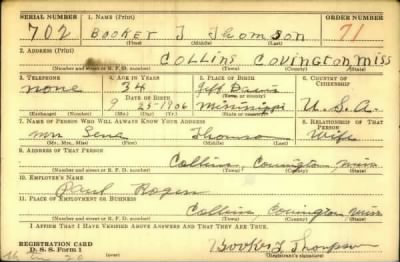 SERIAL NUMBER 1. NAME (Print) ORDER NUMBER
702 Booker T Thomson 71
(First) (Middle) (Last)
2. ADDRESS (Print)
Collins Covington Miss
(Number and street or R. F. D. number) (Town) (County) (State)
3. TELEPHONE 4. AGE IN YEARS 5. PLACE OF BIRTH 6. COUNTRY OF CITIZENSHIP
none 34 Jeff Davis
DATE OF BIRTH (Town or county)
9 25-1906 Mississippi U.S.A.
(Exchange) (Number) (Mo.) (Day) (Yr.) (State or country)
7. NAME OF PERSON WHO WILL ALWAYS KNOW YOUR ADDRESS 8. RELATIONSHIP OF THAT PERSON
Mrs Lena Thomson Wife
(Mr., Mrs., Miss) (First) (Middle) (Last)
9. ADDRESS OF THAT PERSON
Collins, Covington, Miss
(Number and street or R. F. D. number) (Town) (County) (State)
10. EMPLOYER'S NAME
Paul Rogers
11. PLACE OF EMPLOYMENT OR BUSINESS
Collins, Covington, Miss
(Number and street or R. F. D. number) (Town) (County) (State)
I AFFIRM THAT I HAVE VERIFIED ABOVE ANSWERS AND THAT THEY ARE TRUE.
REGISTRATION CARD
D. S. S. Form 1 Booker T Thompson
(Registrant's signature)